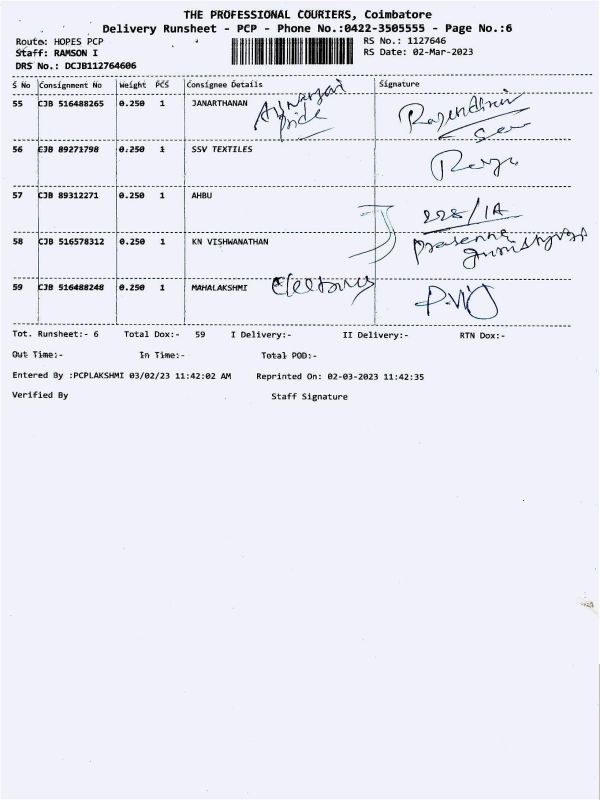 THE PROFESSIONAL COURIERS, Coimbatore
Delivery Runsheet - PCP - Phone No.:0422-3505555 - Page No.:6
Route: HOPES PCP
RS No.: 1127646
Staff: RAMSON I
RS Date: 02-Mar-2023
DRS No.: DCJB112764606
S No Consignment No Weight PCS Consignee Details Signature
55 CJB 516488265 0.250 1 JANARTHANAN
Rajendiran
56 CJB 89271798 0.250 1 SSV TEXTILES
57 CJB 89312271 0.250 1 AHBU
228/1A
58 CJB 516578312 0.250 1 KN VISHWANATHAN
prasenna
59 CJB 516488248 0.250 1 MAHALAKSHMI
Tot. Runsheet:- 6 Total Dox:- 59 I Delivery:- II Delivery:- RTN Dox:-
Out Time:- In Time:- Total POD:-
Entered By :PCPLAKSHMI 03/02/23 11:42:02 AM Reprinted On: 02-03-2023 11:42:35
Verified By Staff Signature